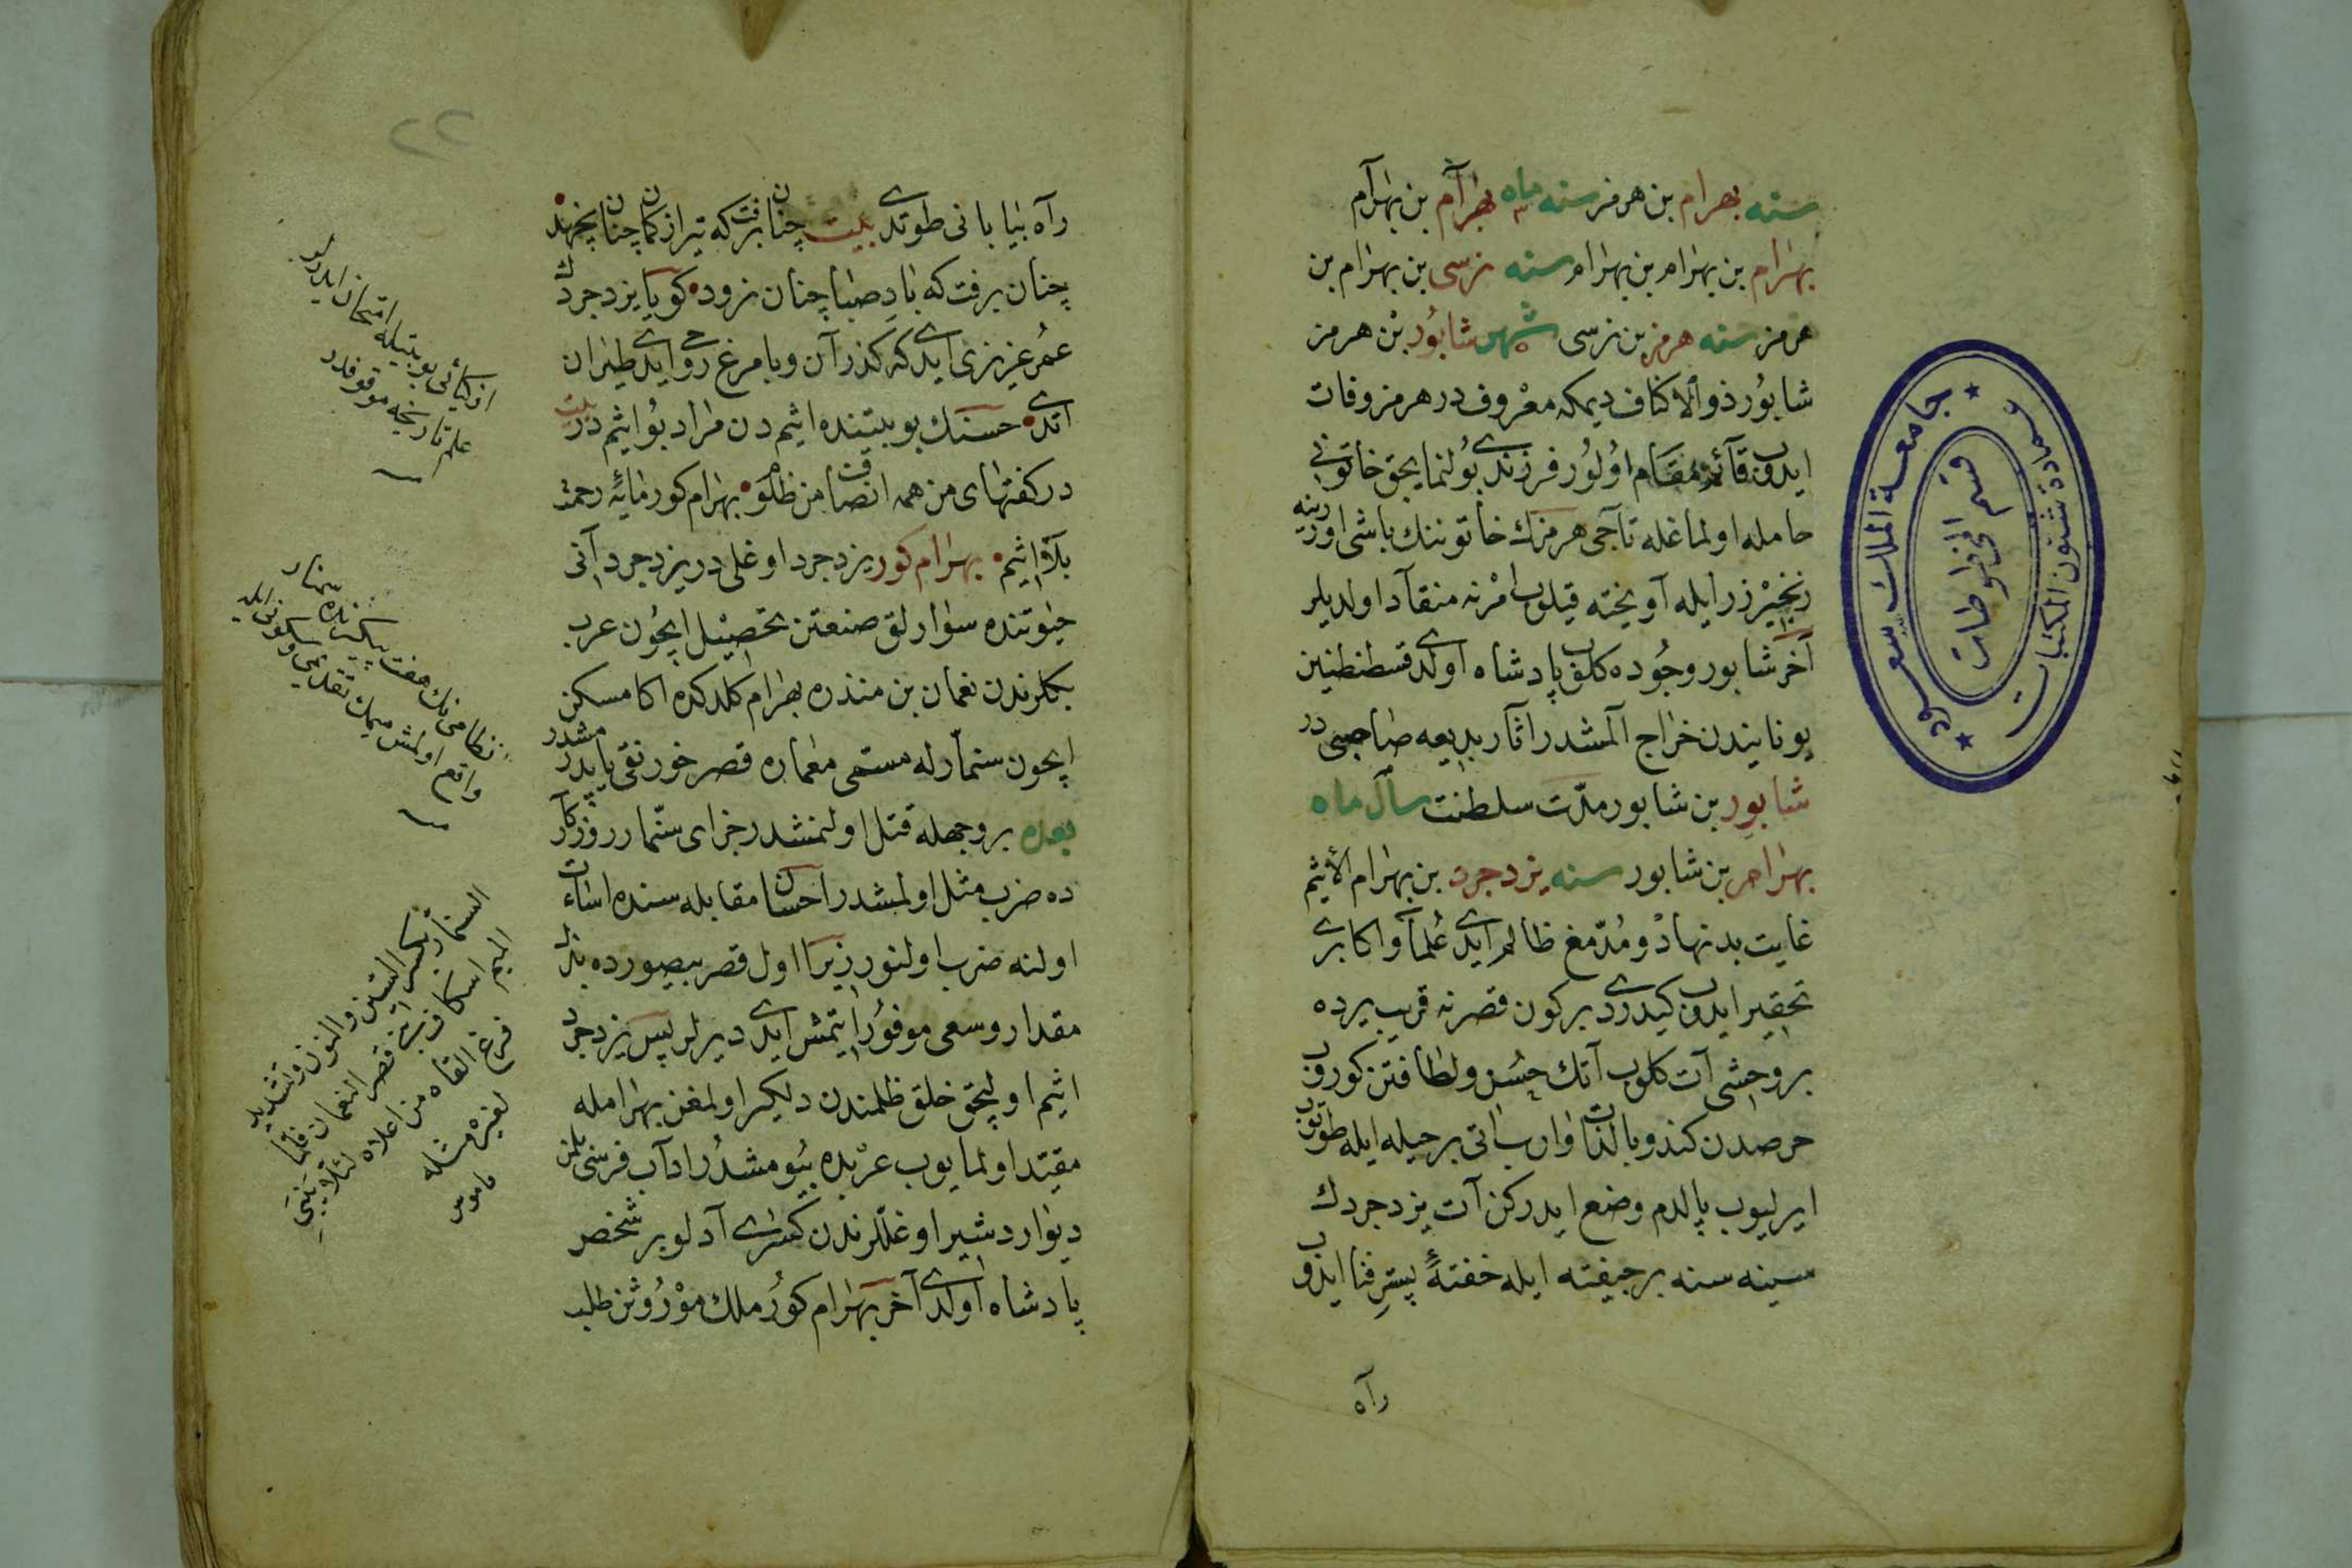 سنه بهرام بن هرمز سنه ماه بهرآم بن بهرآم
بهرام بن بهرام بن بهرام سنه نرسی بن بهرام بن
هرمز سنه هرمز بن نرسی شهر شاپور بن هرمز
شاپور ذوالاکتاف دیمکه معروف در هرمز وفات
ایدوب قآئم مقام اولور فرزندی بولنمایجق خاتونی
حامله اولماغله تاجی هرمزك خاتوننك باشی اوزرینه
زنجیر زر ایله آویخته قیلوب امرنه منقآد اولدیلر
آخر شاپور وجوده کلوب پادشاه اولدی قسطنطنین
یونانیندن خراج آلمشدر اثار بدیعه صاحبی در
شاپور بن شاپور مدّت سلطنت سال ماه
بهرام بن شاپور سنه یزدجرد بن بهرام الأثیم
غایت بدنهاد و مدّمغ ظالم ایدی علمآ و اکابری
تحقیر ایدوب کیدردی بر کون قصرنه قریب یرده
بر وحشی آت کلوب آتك حسن و لطافتن کوروب
حرصدن کندو بالذات واروب اتی بر حیله ایله طوتوب
ایرلیوب پالدم وضع ایدرکن آت یزدجردك
سینه سنه بر جیفته ایله خفتهٔ بستر فنا ایدوب
رآه
جامعة الملك سعود
عمادة شئون المكتبات
قسم المخطوطات
٢٢
رآه بیابانی طوتدی بیت چنان برفت که تیر از کمان چنان نجهد
چنان برفت که باد صبا چنان نرود کویا یزدجرد
عمر عزیزی ایدی که کذرآن ویا مرغ روحی ایدی طیران
اتدی حسنك بو بیتنده اثیم دن مراد بو اثیم در بیت
در کفتهای من همه انصافت من ظلوم بهرام کور مایهٔ رحمت
بلآو اثیم بهرام کور یزدجرد اوغلی در یزدجرد آنی
حیوتنده سوارلق صنعتن تحصیل ایچون عرب
بکلرندن نعمان بن منذره بهرام کلدکده اکا مسکن
ایچون سنمار له مسمی معماره قصر خورنقی یاپدرمشدر
بعده بر وجهله قتل اولنمشدر جزای سنمار روزکار
ده ضرب مثل اولمشدر احسان مقابله سنده اساءت
اولنه ضرب اولنور زیرا اول قصر بیصورده بذل
مقدار و سعی موفور ایتمش ایدی دیرلر پس یزدجرد
اثیم اولیجق خلق ظلمندن دلکیر اولمغن بهرامله
مقیّد اولمایوب عربده بیومشدر ادآب فرسی بلمز
دیو اردشیر اوغللرندن کسرای آدلو بر شخص
پادشاه اولدی آخر بهرام کور ملك موروثن طلب
بو بیتیله امتحان ایدرلر
علم تاریخه موقوفدر
نظامی نك هفت پیکرنده سمنار
واقع اولمش میمك تقدیمی و سکونی ایله
السنمار بکسر السین والنون وتشدید
المیم اسكاف بنی قصر النعمان فلما
فرغ القاه من اعلاه لئلا یبنی
لغیره مثله
قاموس